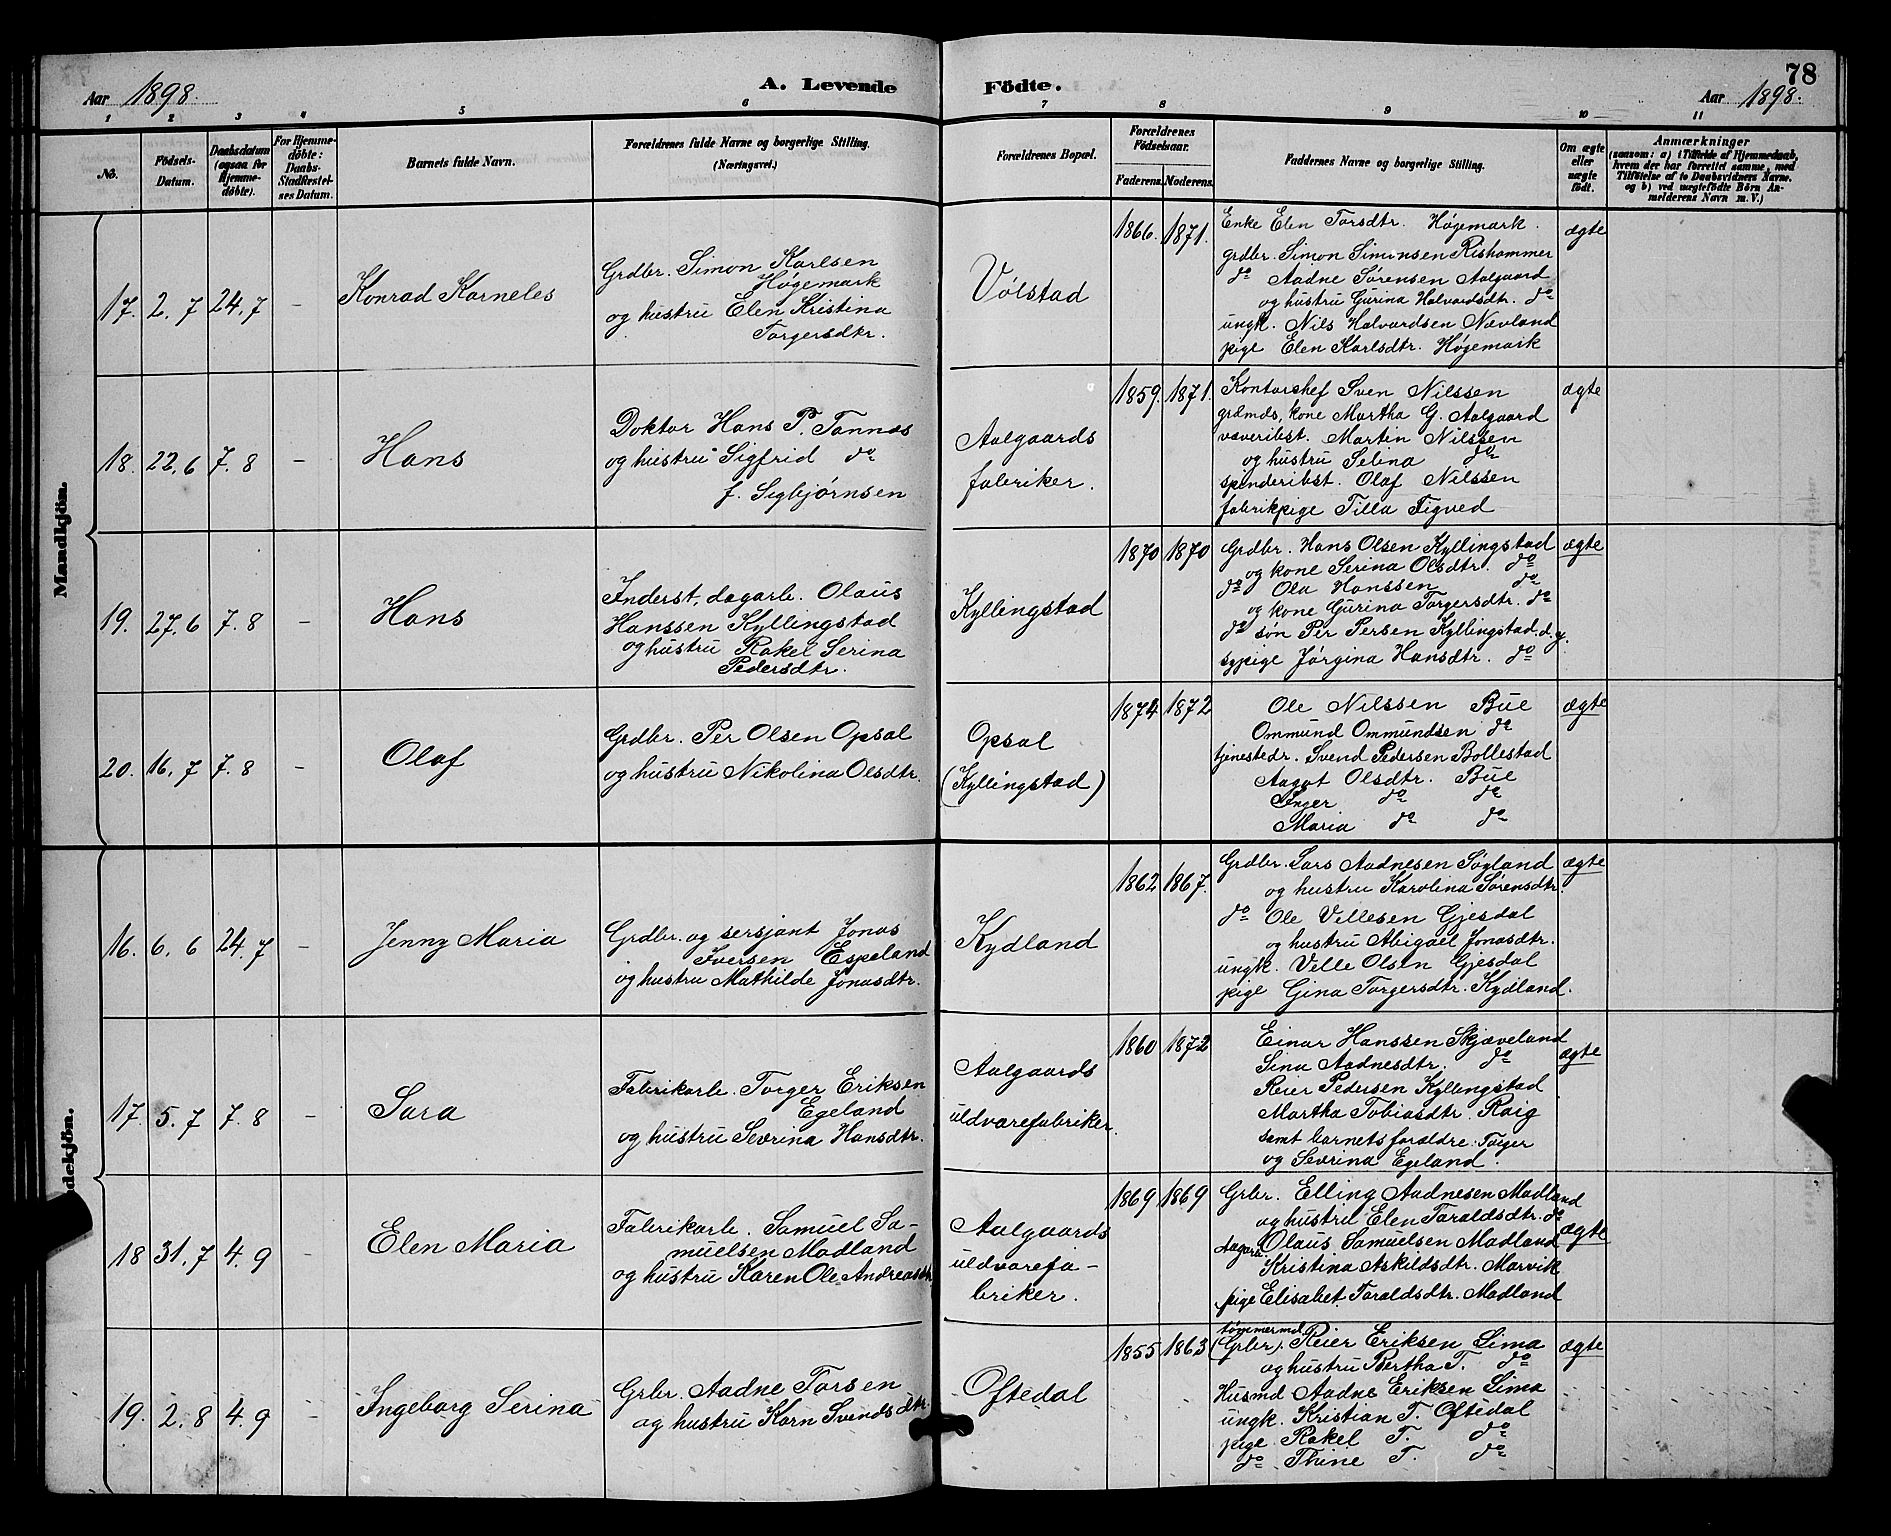 78
Aar 1898.
A. Levende Födte.
Aar 1898.
1 2 3 4 5 6 7 8 9 10 11
No.
Födsels-Datum.
Daabsdatum (ogsaa for Hjemmedöbte).
For Hjemmedöbte: Daabs-Stadfæstelses Datum.
Barnets fulde Navn.
Forældrenes fulde Navne og borgerlige Stilling.
(Næringsvei.)
Forældrenes Bopæl.
Forældrenes Födselsaar.
Faderens. Moderens.
Faddernes Navne og borgerlige Stilling.
Om ægte eller uægte födt.
Anmærkninger
(saasom: a) i Tilfælde af Hjemmedaab,
hvem der har forrettet samme, med
Tilföielse af to Daabsvidners Navne.
og b) ved uægtefödte Börn An-
melderens Navn m. V.)
Mandkjön.
17. 2. 7 24. 7 –
Konrad Karneles
Grdbr. Simon Karlsen
Høgemark
og hustru Elen Kristina
Torgersdtr.
Vølstad
1866. 1871.
Enke Elen Torsdtr. Høgemark.
grdbr. Simon Simonsen Rishammer
do Aadne Sørensen Aalgaard
og hustru Gurina Halvardsdtr. do
ungk. Nils Halvardsen Nævland
pige Elen Karlsdtr. Høgemark
ægte
18. 22. 6 7. 8 –
Hans
Doktor Hans P. Tannæs
og hustru Sigfrid do
f. Sigbjørnsen
Aalgaards
fabriker.
1859. 1871.
Kontorchef Sven Nilssen
grdmds. kone Martha G. Aalgaard
væveribst. Martin Nilssen
og hustru Selina do
spinderibst. Olaf Nilssen
fabrikpige Tilla Figved
ægte
19. 27. 6 7. 8 –
Hans
Inderst, dagarb. Olaus
Hanssen Kyllingstad
og hustru Rakel Serina
Pedersdtr.
Kyllingstad
1870 1870
Grdbr. Hans Olsen Kyllingstad
og kone Serina Olsdtr. do
do Ola Hanssen do
og kone Gurina Torgersdtr. do
do søn Per Persen Kyllingstad. d.y.
sypige Jørgina Hansdtr. do
ægte
20. 16. 7 7. 8 –
Olaf
Grdbr. Per Olsen Opsal
og hustru Nikolina Olsdtr.
Opsal
(Kyllingstad)
1874 1872
Ole Nilssen Bue
Ommund Ommundsen do
tjenestedr. Svend Pedersen Bollestad
Aagot Olsdtr. Bue
Inger do do
Maria do do
ægte
dekjön.
16. 6. 6 24. 7 –
Jenny Maria
Grdbr. og sersjant Jonas
Iversen Espeland
og hustru Mathilde Jonasdtr.
Kydland
1862 1867.
Grdbr. Lars Aadnesen Søyland
og hustru Karolina Sørensdtr.
do Ole Villesen Gjesdal
og hustru Abigael Jonasdtr.
ungk. Velle Olsen Gjesdal
pige Gina Torgersdtr. Kydland.
ægte
17. 5. 7 7. 8 –
Sara
Fabrikarb. Torger Eriksen
Egeland
og hustru Sevrina Hansdtr.
Aalgaards
uldvarefabriker.
1860 1872
Einar Hanssen Skjæveland
Sina Aadnesdtr. do
Reier Pedersen Kyllingstad
Martha Tobiasdtr. Raig
samt barnets forældre. Torger
og Sevrina Egeland.
ægte
18 31. 7 4. 9 –
Elen Maria
Fabrikarb. Samuel Sa-
muelsen Madland
og hustru Karen Ole Andreasdtr.
Aalgaards
uldvarefa-
briker.
1869 1869
Grbr. Elling Aadnesen Madland
og hustru Elen Taraldsdtr. do
dagarb. Olaus Samuelsen Madland
Kristina Askildsdtr. Marvik
pige Elisabet Taraldsdtr. Madland
ægte
19. 2. 8 4. 9 –
Ingeborg Serina
Grbr. Aadne Torsen
og hustru Karn Svendsdtr.
Oftedal
1855 1863
tømmermd
(Grbr). Reier Eriksen Lima
og hustru Bertha T. do
Husmd Aadne Eriksen Lima
ungk. Kristian T. Oftedal
pige Rakel T. do
do Thine T. do
ægte